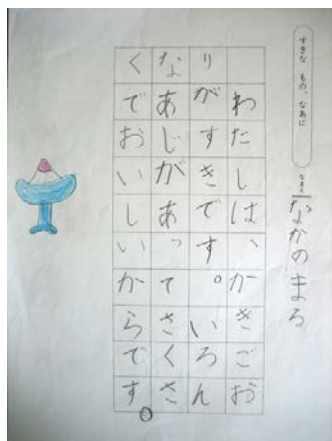 すきな もの、なあに
なまえ なかの まろ
わたしは、かきごお
りがすきです。いろん
なあじがあってさくさ
くでおいしいからです。